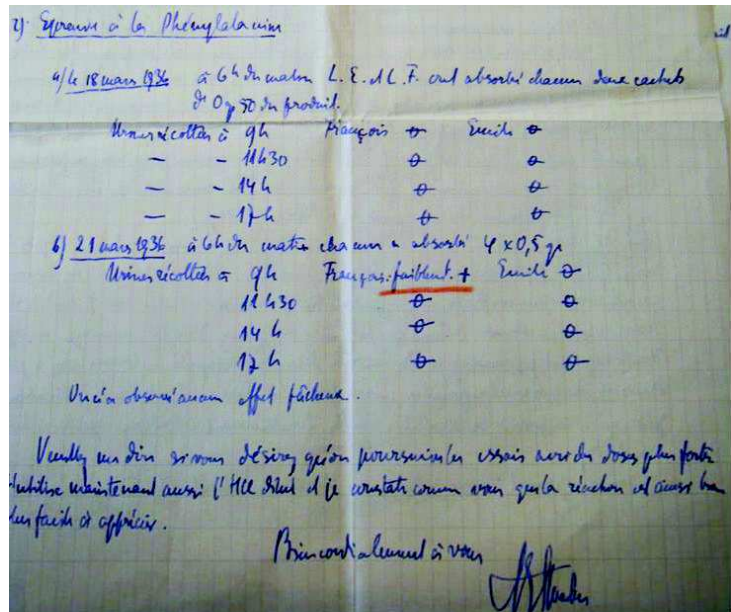 2) Epreuve à la Phénylalanine
a/ le 18 mars 1936 à 6h du matin L. E. et L. F. ont absorbé chacun deux cachets
de 0 gr 50 du produit.
Urines récoltées à 9h François θ Emile θ
— — 11h30 θ θ
— — 14h θ θ
— — 17h θ θ
b) 21 mars 1936 à 6h du matin chacun a absorbé 4 x 0,5 gr
Urines récoltées à 9h François: faiblemt. + Emile θ
11h30 θ θ
14h θ θ
17h θ θ
On n'a observé aucun effet fâcheux.
Veuillez me dire si vous désirez qu'on poursuive les essais avec des doses plus fortes
J'utilise maintenant aussi l'HCl dilué et je constate comme vous que la réaction est ainsi bien
plus facile à apprécier.
Bien cordialement à vous